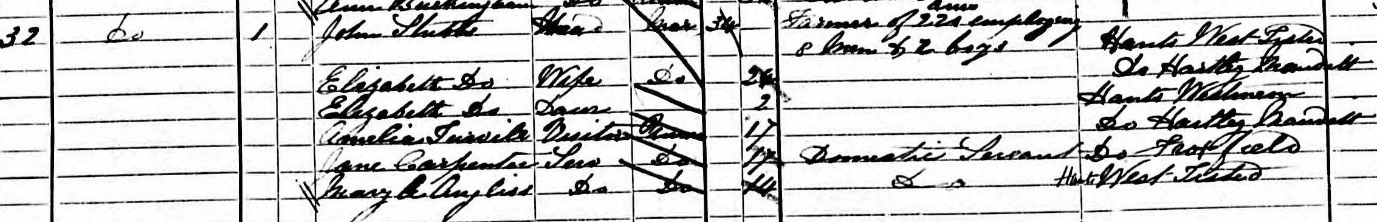 Ann Buckingham Do
32 Do 1 John Stubbs Head Mar 34 Farmer of 220 employing Hants West Tisted
8 Men & 2 boys
Elizabeth Do Wife Do 24 Do Hartley Mauditt
Elizabeth Do Daur 2 Hants Westmeon
Amelia Turvile Visitor Unm 17 Do Hartley Mauditt
Jane Carpenter Serv Do 17 Domestic Servant Do Froxfield
Mary A Angliss Do Do 14 Do Hants West Tisted